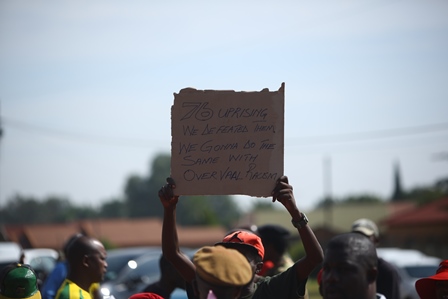 76 UPRISING
WE DEFEATED THEM,
WE GONNA DO THE
SAME WITH
OVERVAAL RACISM